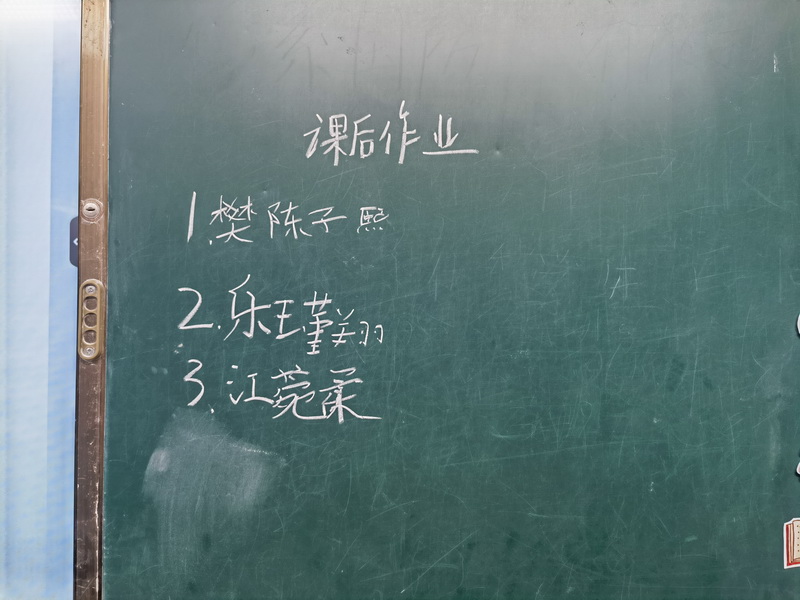 课后作业
1.樊陈子熙
2.乐瑾翔
3.江菀柔